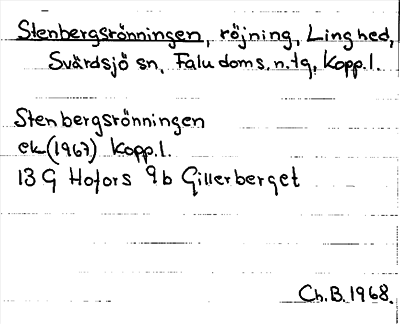 Stenbergsrönningen, röjning, Linghed,
Svärdsjö sn, Falu doms. n. tg, Kopp. l.
Stenbergsrönningen
ek (1967) Kopp. l.
13 G Hofors 9 b Gillerberget
Ch. B. 1968.